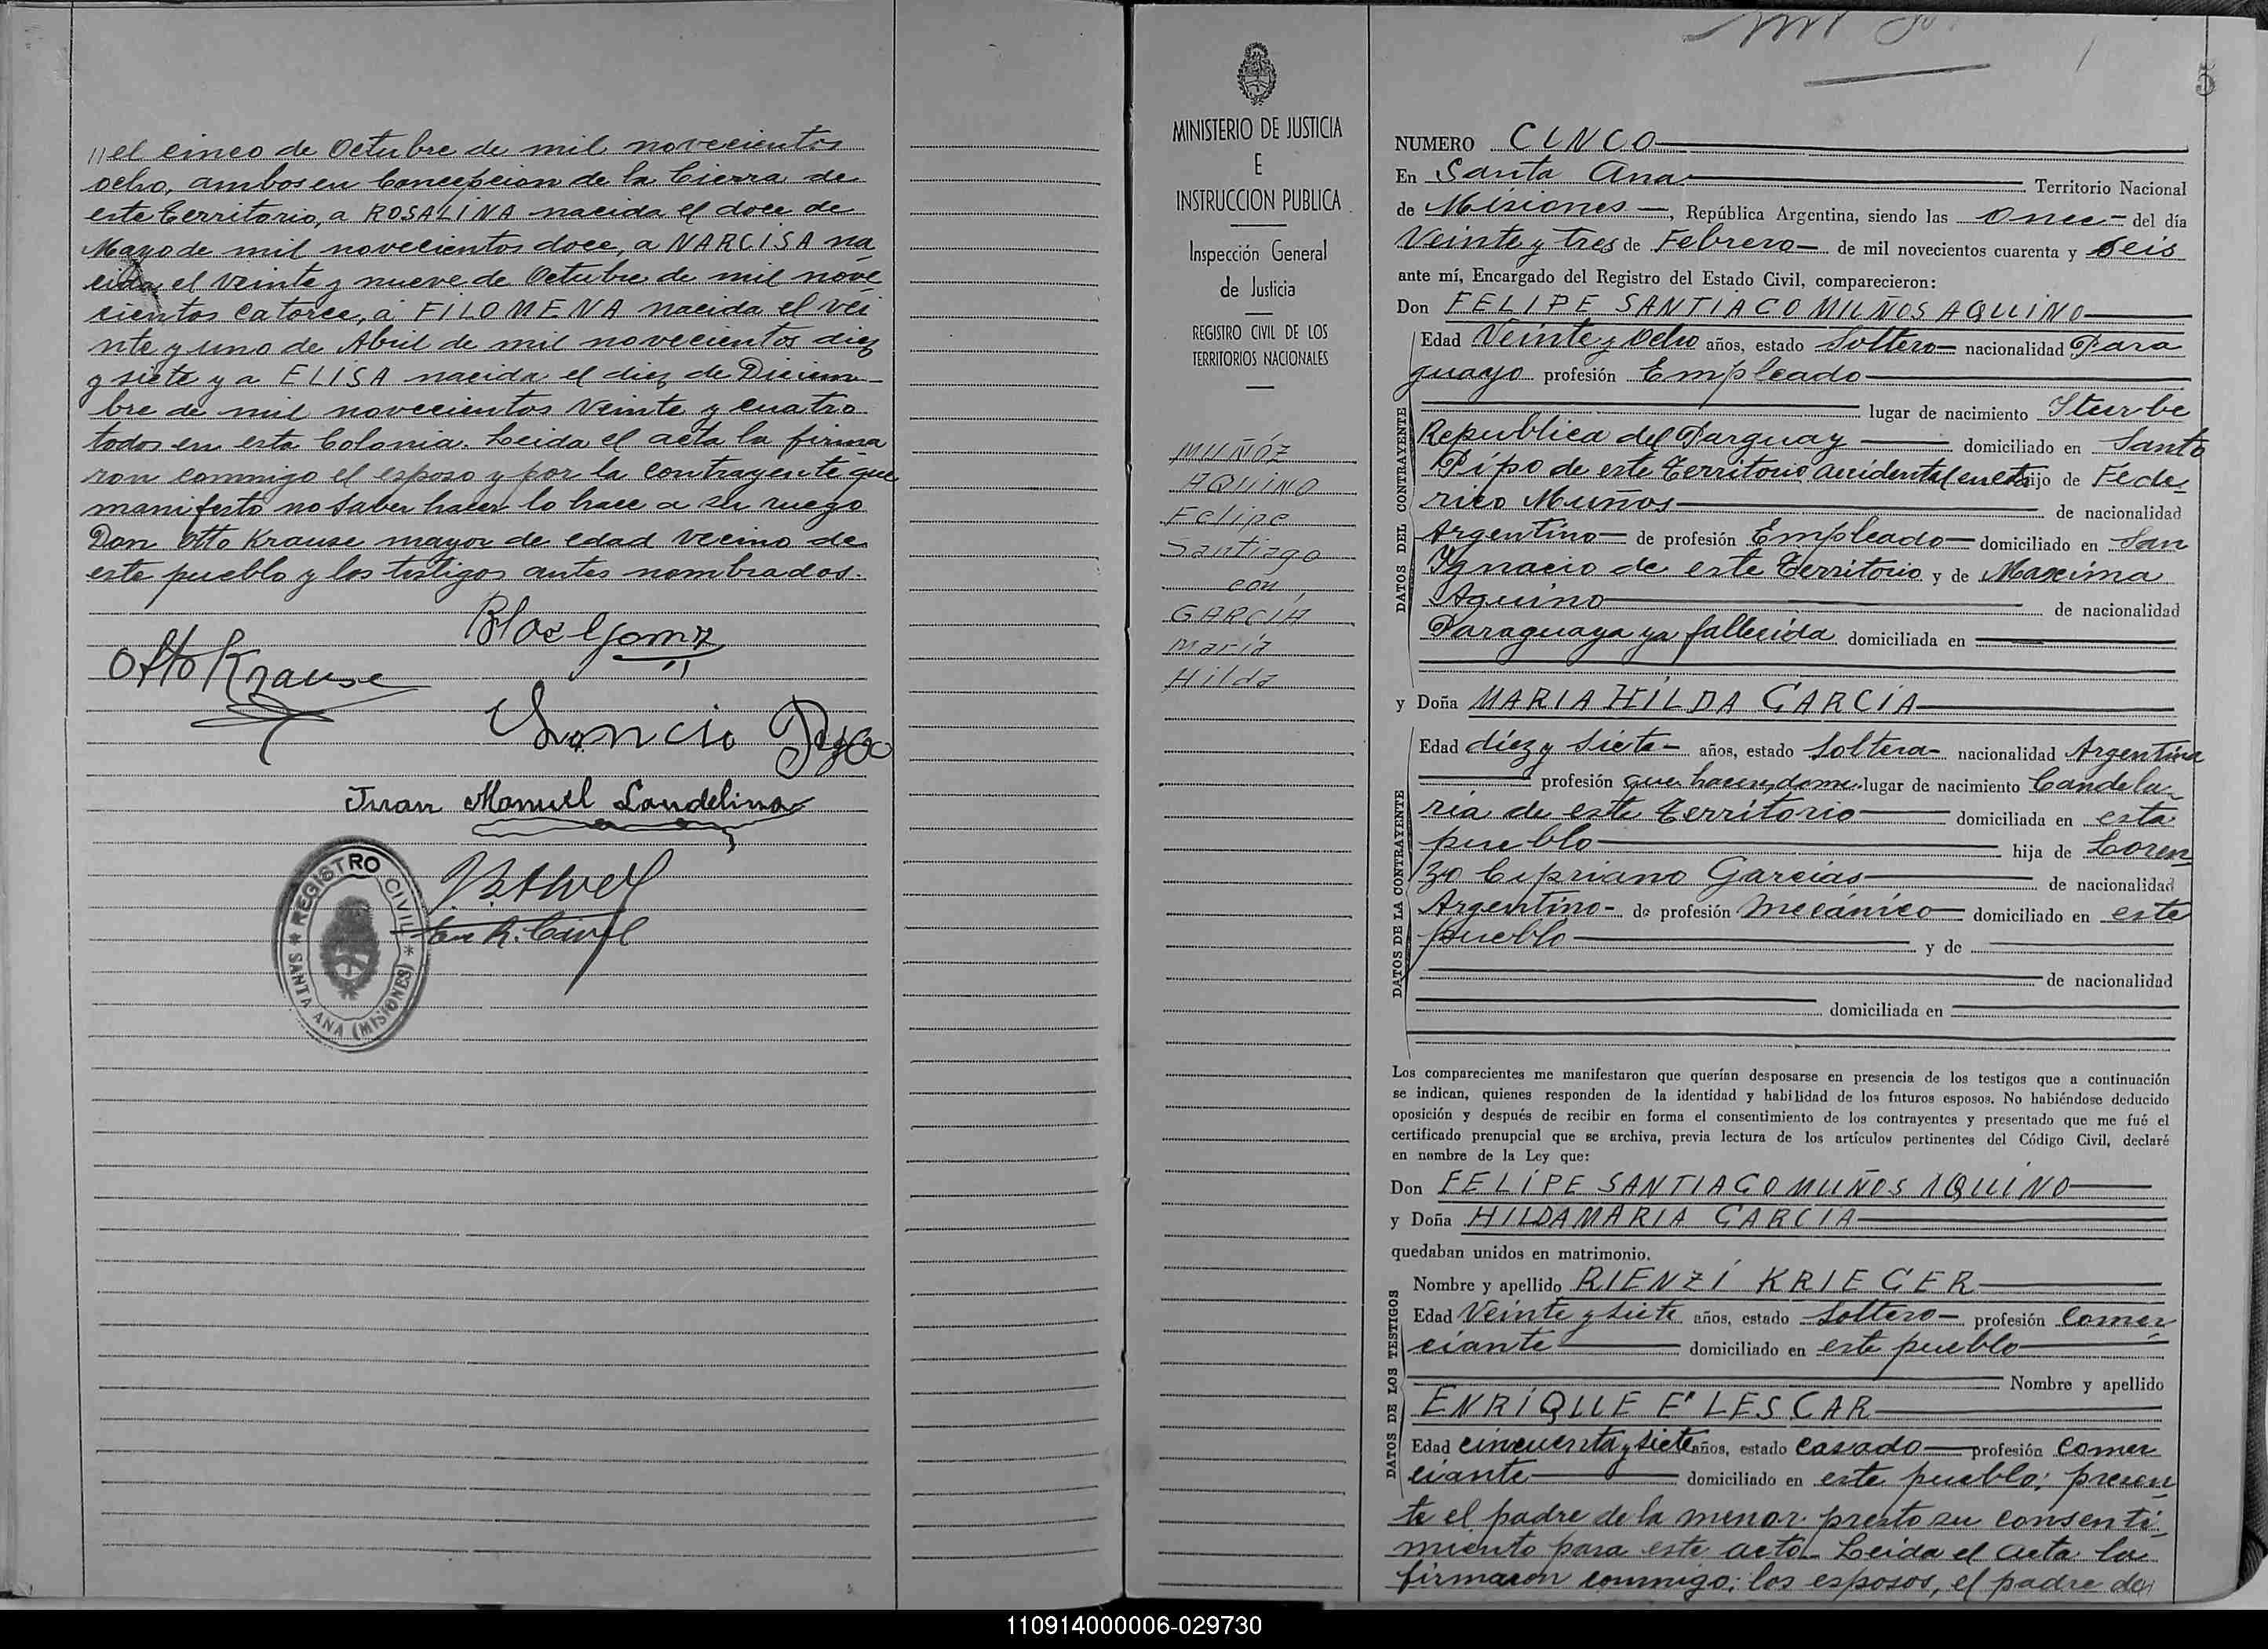 // el cinco de Octubre de mil novecientos
ocho, ambos en Concepcion de la Cierra de
este territorio, a ROSALINA nacida el doce de
Mayo de mil novecientos doce, a NARCISA na
cida el veinte y nueve de Octubre de mil nove
cientos catorce, a FILOMENA nacida el vei
nte y uno de Abril de mil novecientos diez
y siete y a ELISA nacida el diez de Diciem-
bre de mil novecientos veinte y cuatro
todos en esta Colonia. Leida el acta la firma
ron conmigo el esposo y por la contrayente que
manifesto no saber hacer lo hace a su ruego
Don Otto Krause mayor de edad vecino de
este pueblo y los testigos antes nombrados.
Otto Krause
Juan Manuel Landelino
En R. Civil
REGISTRO CIVIL
SANTA ANA (MISIONES)
MINISTERIO DE JUSTICIA
E
INSTRUCCION PUBLICA
Inspección General
de Justicia
REGISTRO CIVIL DE LOS
TERRITORIOS NACIONALES
MUÑÓZ
AQUINO
Felipe
Santiago
con
GARCÍA
María
Hilda
5
NUMERO CINCO
En Santa Ana Territorio Nacional
de Misiones, República Argentina, siendo las once del día
Veinte y tres de Febrero de mil novecientos cuarenta y seis
ante mí, Encargado del Registro del Estado Civil, comparecieron:
Don FELIPE SANTIAGO MUÑOS AQUINO
DATOS DEL CONTRAYENTE
Edad Veinte y Ocho años, estado Soltero nacionalidad Para
guayo profesión Empleado
lugar de nacimiento Iturbe
Republica del Parguay domiciliado en Santo
Pipo de este territorio accidental en esta hijo de Fede
rico Muños de nacionalidad
Argentino de profesión Empleado domiciliado en San
Ignacio de este Territorio y de Maxima
Aquino de nacionalidad
Paraguaya ya fallecida domiciliada en
y Doña MARIA HILDA GARCÍA
DATOS DE LA CONTRAYENTE
Edad diez y siete años, estado Soltera nacionalidad Argentina
profesión que hacer, dome. lugar de nacimiento Candela-
ria de este territorio domiciliada en esta
pueblo hija de Loren
zo Cipriano Garcias de nacionalidad
Argentino de profesión Mecánico domiciliado en este
pueblo y de
de nacionalidad
domiciliada en
Los comparecientes me manifestaron que querían desposarse en presencia de los testigos que a continuación
se indican, quienes responden de la identidad y habilidad de los futuros esposos. No habiéndose deducido
oposición y después de recibir en forma el consentimiento de los contrayentes y presentado que me fué el
certificado prenupcial que se archiva, previa lectura de los artículos pertinentes del Código Civil, declaré
en nombre de la Ley que:
Don FELIPE SANTIAGO MUÑOS AQUINO
y Doña HILDA MARIA GARCIA
quedaban unidos en matrimonio.
DATOS DE LOS TESTIGOS
Nombre y apellido RIENZI KRIEGER
Edad Veinte y siete años, estado Soltero profesión Comer
ciante domiciliado en este pueblo
Nombre y apellido
ENRIQUE E" LESCAR
Edad cincuenta y siete años, estado casado profesión Comer
ciante domiciliado en este pueblo; presen
te el padre de la menor presto su consenti
miento para este acto. Leida el acta la
firmaron conmigo; los esposos, el padre de
110914000006-029730